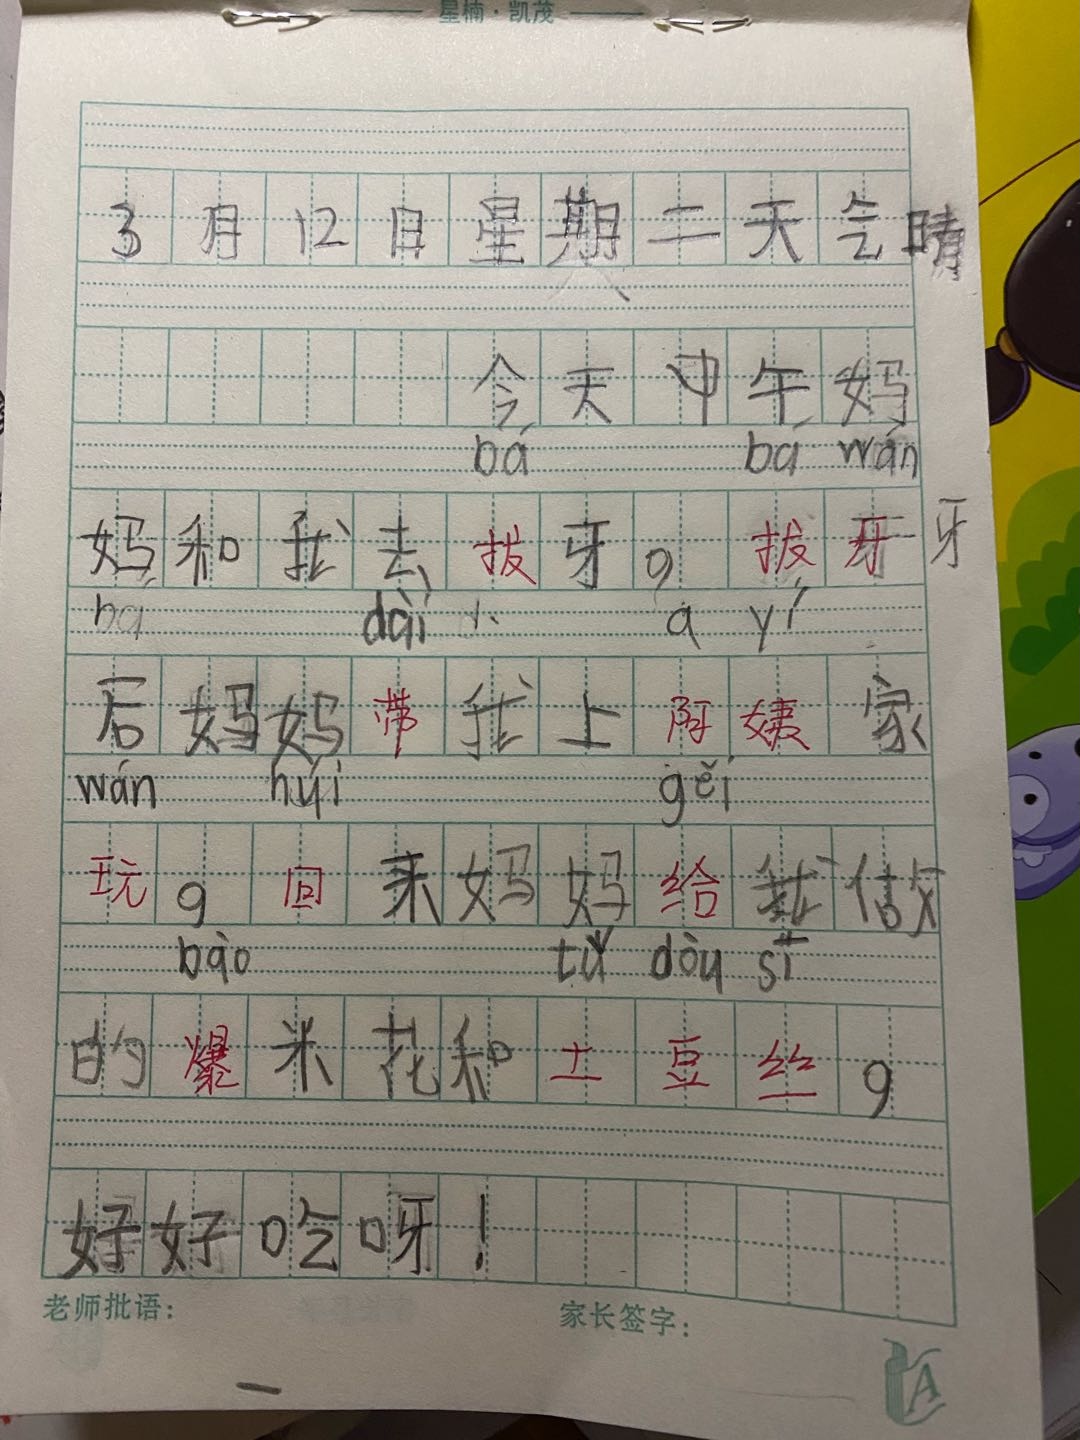 星楠·凯茂
3月12日星期二天气晴
今天中午妈
bá bá wán
妈和我去拔牙。拔牙牙
bá dài a yí
后妈妈带我上阿姨家
wán húi gěi
玩。回来妈妈给我做
bào tǔ dòu sī
的爆米花和土豆丝。
好好吃呀!
老师批语: 家长签字:
A